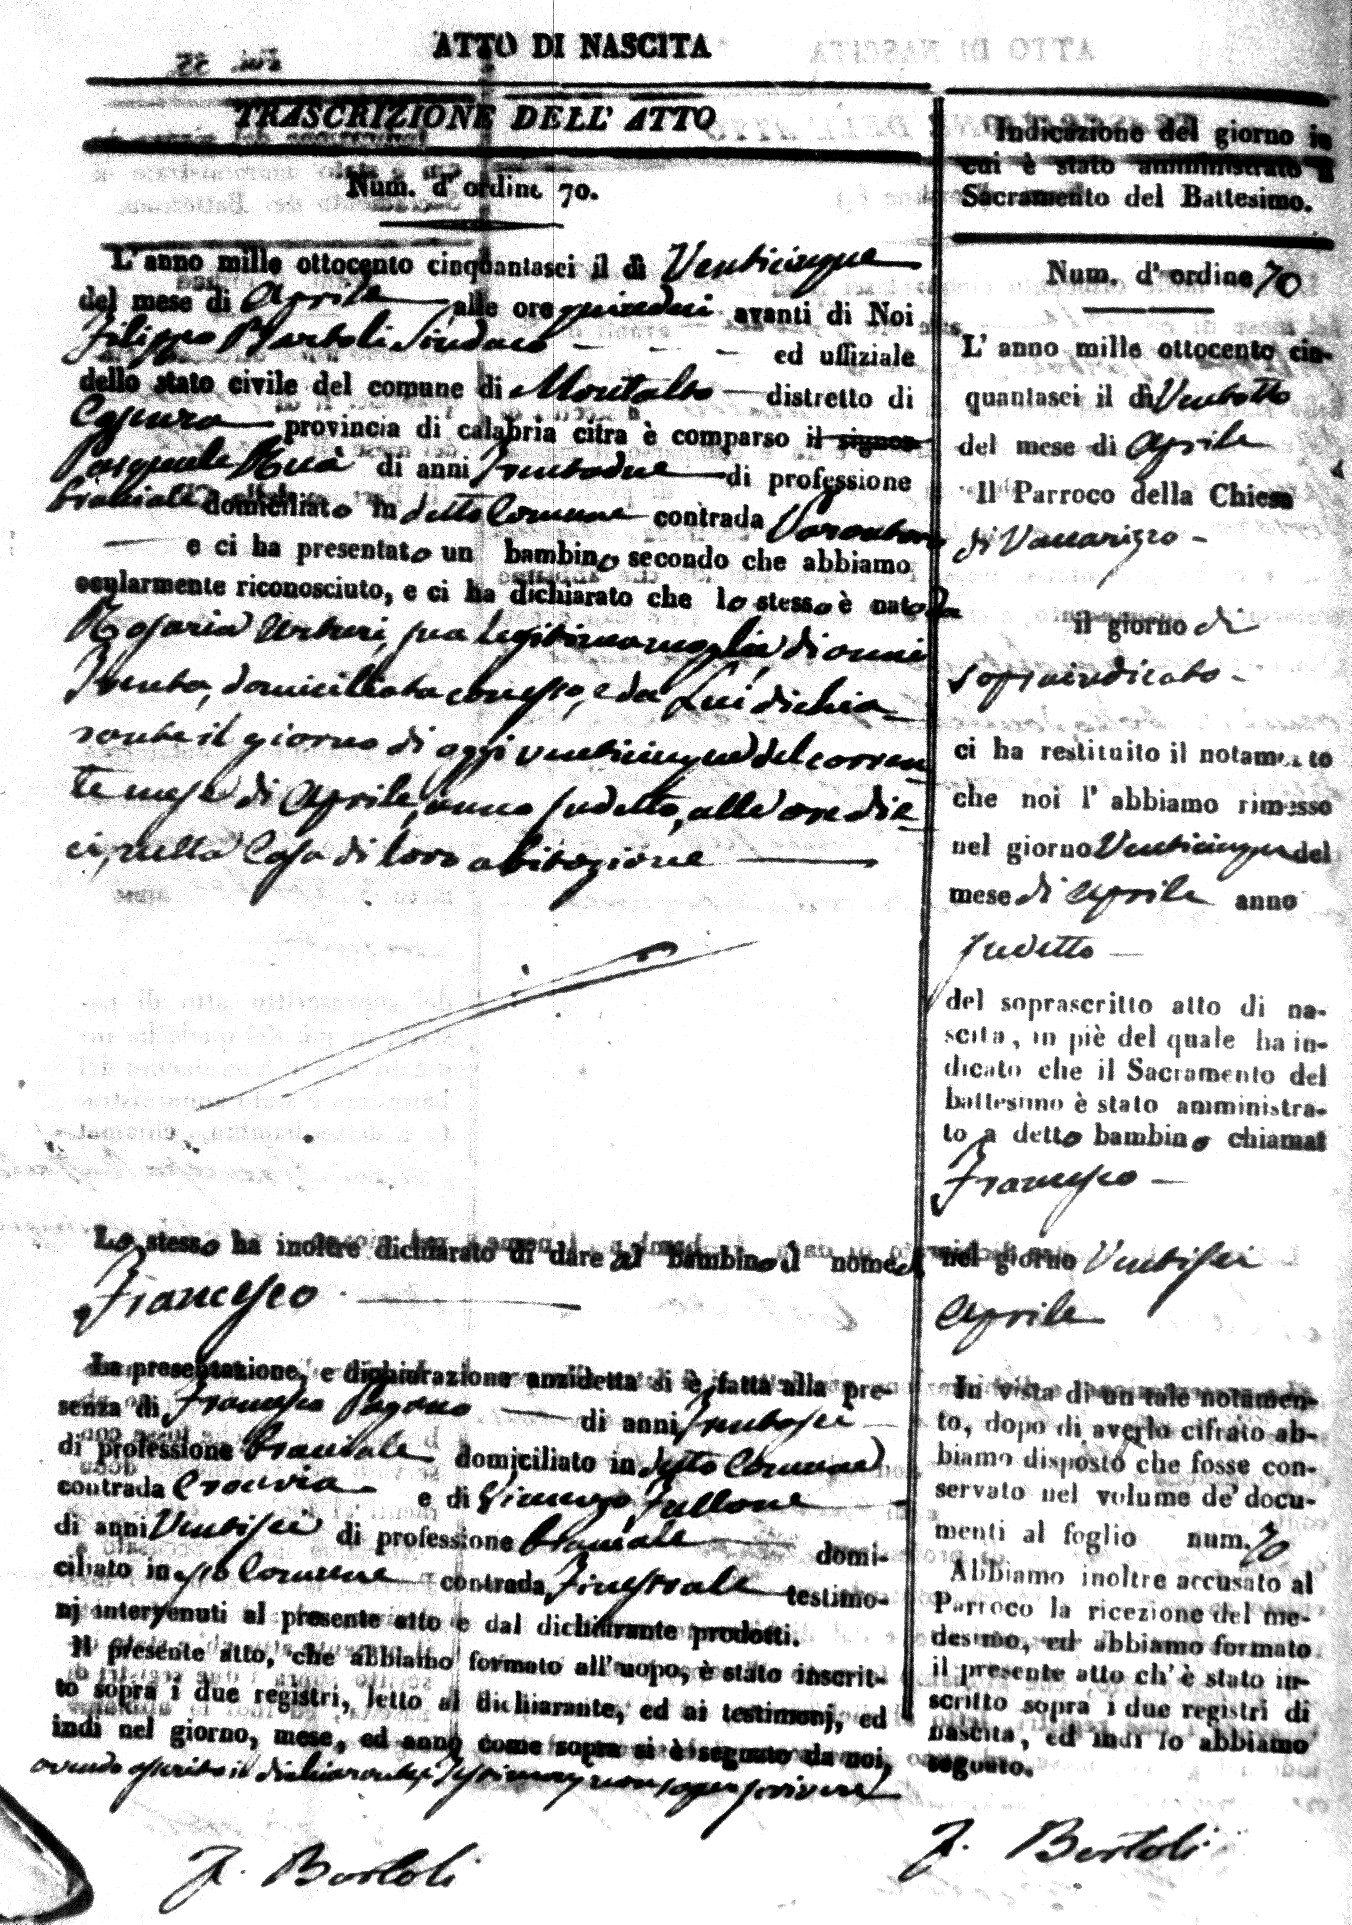 ATTO DI NASCITA
TRASCRIZIONE DELL' ATTO
Num. d' ordine 70.
L'anno mille ottocento cinquantasei il dì Venticinque
del mese di Aprile alle ore quindici avanti di Noi
Filippo Bartoli Sindaco ed uffiziale
dello stato civile del comune di Montalto distretto di
Cosenza provincia di calabria citra è comparso il signor
Pasquale di anni Trentadue di professione
Bracciale domiciliato in detto Comune contrada
e ci ha presentato un bambino secondo che abbiamo
ocularmente riconosciuto, e ci ha dichiarato che lo stesso è nato da
Rosaria sua legittima moglie, di anni
Trenta, domiciliata con esso, e da Lui dichia
rante il giorno di oggi venticinque del corren
te mese di Aprile, anno sudetto, alle ore die
ci, nella Casa di loro abitazione
Lo stesso ha inoltre dichiarato di dare al bambino il nome di
Francesco
La presentazione, e dichiarazione anzidetta si è fatta alla pre-
senza di Francesco Pagano di anni Trentasei
di professione Bracciale domiciliato in detto Comune
contrada e di Vincenzo Fullone
di anni Ventisei di professione Bracciale domi-
ciliato in Comune contrada Finestrale testimo-
nj intervenuti al presente atto e dal dichiarante prodotti.
Il presente atto, che abbiamo formato all'uopo, è stato inscrit-
to sopra i due registri, letto al dichiarante, ed ai testimonj, ed
indi nel giorno, mese, ed anno come sopra si è segnato da noi,
avendo asserito il dichiarante, e Testimonj non saper scrivere
F. Bartoli
Indicazione del giorno in
cui è stato amministrato il
Sacramento del Battesimo.
Num. d' ordine 70
L' anno mille ottocento cin-
quantasei il dì Ventotto
del mese di Aprile
Il Parroco della Chiesa
di Vaccarizzo
il giorno di
sopraindicato
ci ha restituito il notamento
che noi l' abbiamo rimesso
nel giorno Venticinque del
mese di Aprile anno
sudetto
del soprascritto atto di na-
scita, in piè del quale ha in-
dicato che il Sacramento del
battesimo è stato amministra-
to a detto bambino chiamat
Francesco
nel giorno Ventisei
Aprile
In vista di un tale notamen-
to, dopo di averlo cifrato ab-
biamo disposto che fosse con-
servato nel volume de' docu-
menti al foglio num. 70
Abbiamo inoltre accusato al
Parroco la ricezione del me-
desimo, ed abbiamo formato
il presente atto ch' è stato in-
scritto sopra i due registri di
nascita, ed indi lo abbiamo
segnato.
F. Bartoli